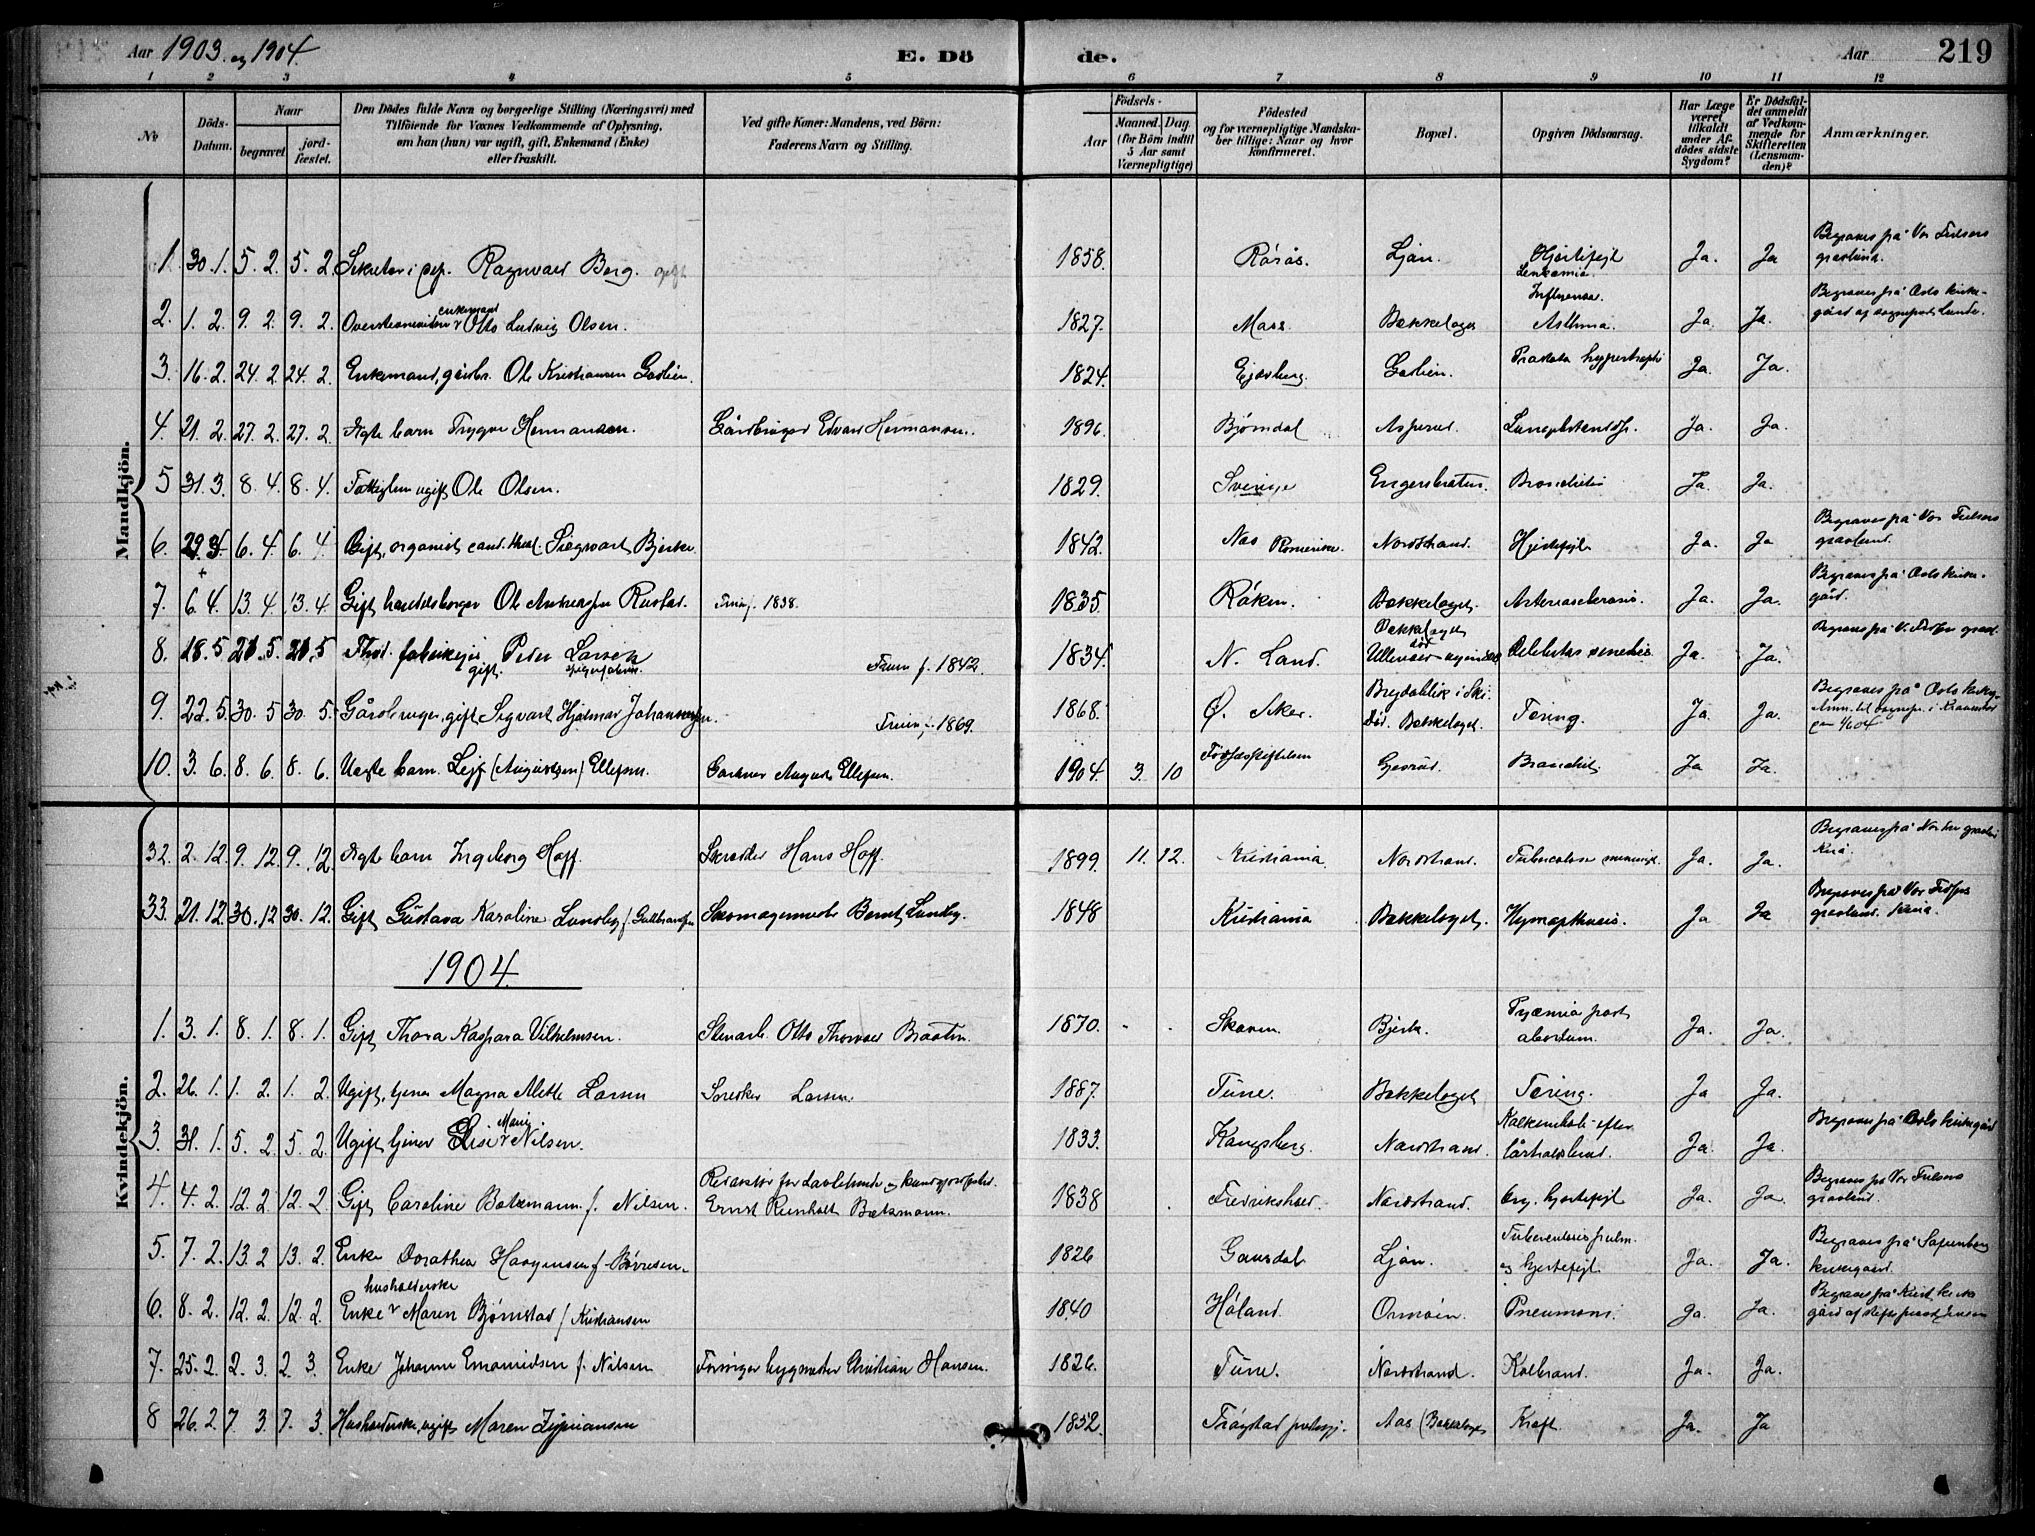 Aar 1903 og 1904. E. Dö de. Aar 219
1 2 3 4 5 6 7 8 9 10 11 12
No
Döds-Datum.
Naar
begravet
jordfæstet.
Den Dödes fulde Navn og borgerlige Stilling (Næringsvei) med
Tilföiende for Voxnes Vedkommende af Oplysning,
om han (hun) var ugift, gift, Enkemand (Enke)
eller fraskilt.
Ved gifte Koner: Mandens, ved Börn:
Faderens Navn og Stilling.
Födsels-
Aar
Maaned. Dag.
(for Börn indtil
5 Aar samt
Værnepligtige)
Födested
og for værnepligtige Mandska-
ber tillige: Naar og hvor
konfirmeret.
Bopæl.
Opgiven Dödsaarsag.
Har Læge
været
tilkaldt
under Af-
dödes sidste
Sygdom?
Er Dödsfal-
det anmeldt
af Vedkom-
mende for
Skifteretten
(Lensman-
den)?
Anmærkninger.
Mandkjön.
1. 30. 1. 5. 2. 5. 2. Sekretær i dep. Ragnvald Borg. gift 1858. Rørås. Ljan. Hjertefejl Leukæmia. Ja. Ja Begraves på Vor Frelsers gravlund.
2. 1. 2. 9. 2. 9. 2. enkemand Otto Ludvig Olsen. 1827. Moss. Bækkelaget Influensa. Asthma. Ja. Ja. Begraves på Oslo kirkegård af sogneprest Lunde.
3. 16. 2. 24. 2. 24. 2. Enkemand, gårdbr. Ole Kristiansen Godlien. 1824. Ejdsberg. Godlien. Prostata hypertrophi Ja. Ja.
4. 21. 2. 27. 2. 27. 2. Ægte barn Trygve Hermansen. Gårdbruger Edvard Hermansen. 1896. Bjørndal Asperud. Ja. Ja.
5 31. 3. 8. 4. 8. 4. Fattiglem ugift Ole Olsen. 1829. Sverige Engersbråten. Bronchitis Ja. Ja.
6. 29. 3. 6. 4. 6. 4. Gift, organist cand. theol. Siegwart Bjerke. 1842. Nes Romerike. Nordstrand. Hjertefejl. Ja. Ja Begraves på Vor Frelsers gravlund.
7. 6. 4. 13. 4. 13. 4. Gift handelsborger Ole Andreassen Rustad. Fruen f. 1838. 1835. Røken. Bækkelaget. Arteriosclerosis. Ja. Ja. Begraves på Oslo kirkegård.
8. 18. 5 21. 5. 21. 5 Fhv. fabrikejer Peder Larsen gift. Fruen f. 1842. 1834. N. Land. Bækkelaget død Ullevaal sygehus Ja. Ja. Begraves på V. Frelsers gravl.
9. 22. 5. 30. 5 30. 5. Gårdbruger, gift Sigvart Hjalmar Johannessen. Fruen f. 1869. 1868. Ø. Aker. Breidablik i Ski. Død Bækkelaget. Tæring. Ja. Ja. Begraves på Oslo kirkeg. Anm. til sognepr. i Kraakstad
10. 3. 6. 8. 6. 8. 6. Uægte barn Leif (Augustsen) Ellefsen. Gartner August Ellefsen. 1904. 3. 10 Fødselsstiftelsen Bronchit. Ja Ja.
Kvindekjön.
32. 2. 12. 9. 12. 9. 12. Ægte barn Ingeborg Hoff. Skrædder Hans Hoff. 1899. 11. 12. Kristiania. Nordstrand. Tuberculøse meningit. Ja. Ja. Begraves på Nordre gravlund Kria.
33. 21. 12. 30. 12 30. 12. Gift Gustava Karoline Lundby f. Gulbrandsen Skomagermester Bernt Lundby. 1848 Kristiania Bækkelaget. Hæmopthysis. Ja Ja Begraves på Vor Frelsers gravlund. Kria.
1904.
1. 3. 1. 8. 1. 8. 1. Gift Thora Kaspara Vilhelmsen. Stenarb. Otto Thorvald Braaten. 1870. Bjerk. Pyæmia post abortum. Ja. Ja.
2. 26. 1. 1. 2 1. 2 Ugift, tjener Magna Alette Larsen Larsen. 1887. Tune. Bækkelaget Tæring. Ja Ja.
3. 31. 1. 5. 2 5. 2 Ugift tjener Elise Marie Nilsen. 1833. Kongsberg. Nordstrand. efter lårhalsbrud. Ja Ja. Begraves på Oslo kirkegård
4. 4. 2. 12. 2 12. 2 Gift Caroline Bætzmann f. Nilsen. Redaktør for Ernst Reinholt Bætzmann. 1838 Fredrikshald. Nordstrand. Org. hjertefejl Ja. Ja. Begraves på Vor Frelsers gravlund.
5. 7. 2. 13. 2 13. 2. Enke Dorothea Haagensen f. Børresen. 1826 Gausdal Ljan. og hjertefejl. Ja. Ja. Begraves på Sofienberg kirkegård.
6. 8. 2. 12. 2. 12. 2 Enke husholderske Maren Bjørnstad f. Kristiansen 1840. Høland. Ormøen. Pneumoni. Ja. Ja. Begraves på kirkegård af stiftsprost Jensen
7. 25. 2. 2. 3. 2. 3. Enke Johanne f. Nilsen Christian Hansen. 1826. Tune. Nordstrand. Koldbrand. Ja. Ja.
8 26. 2. 7. 3. 7. 3 Husholderske, ugift Maren Zypriansen 1852. Trøgstad prestegj. Aas (Bækkelaget Kræft. Ja. Ja